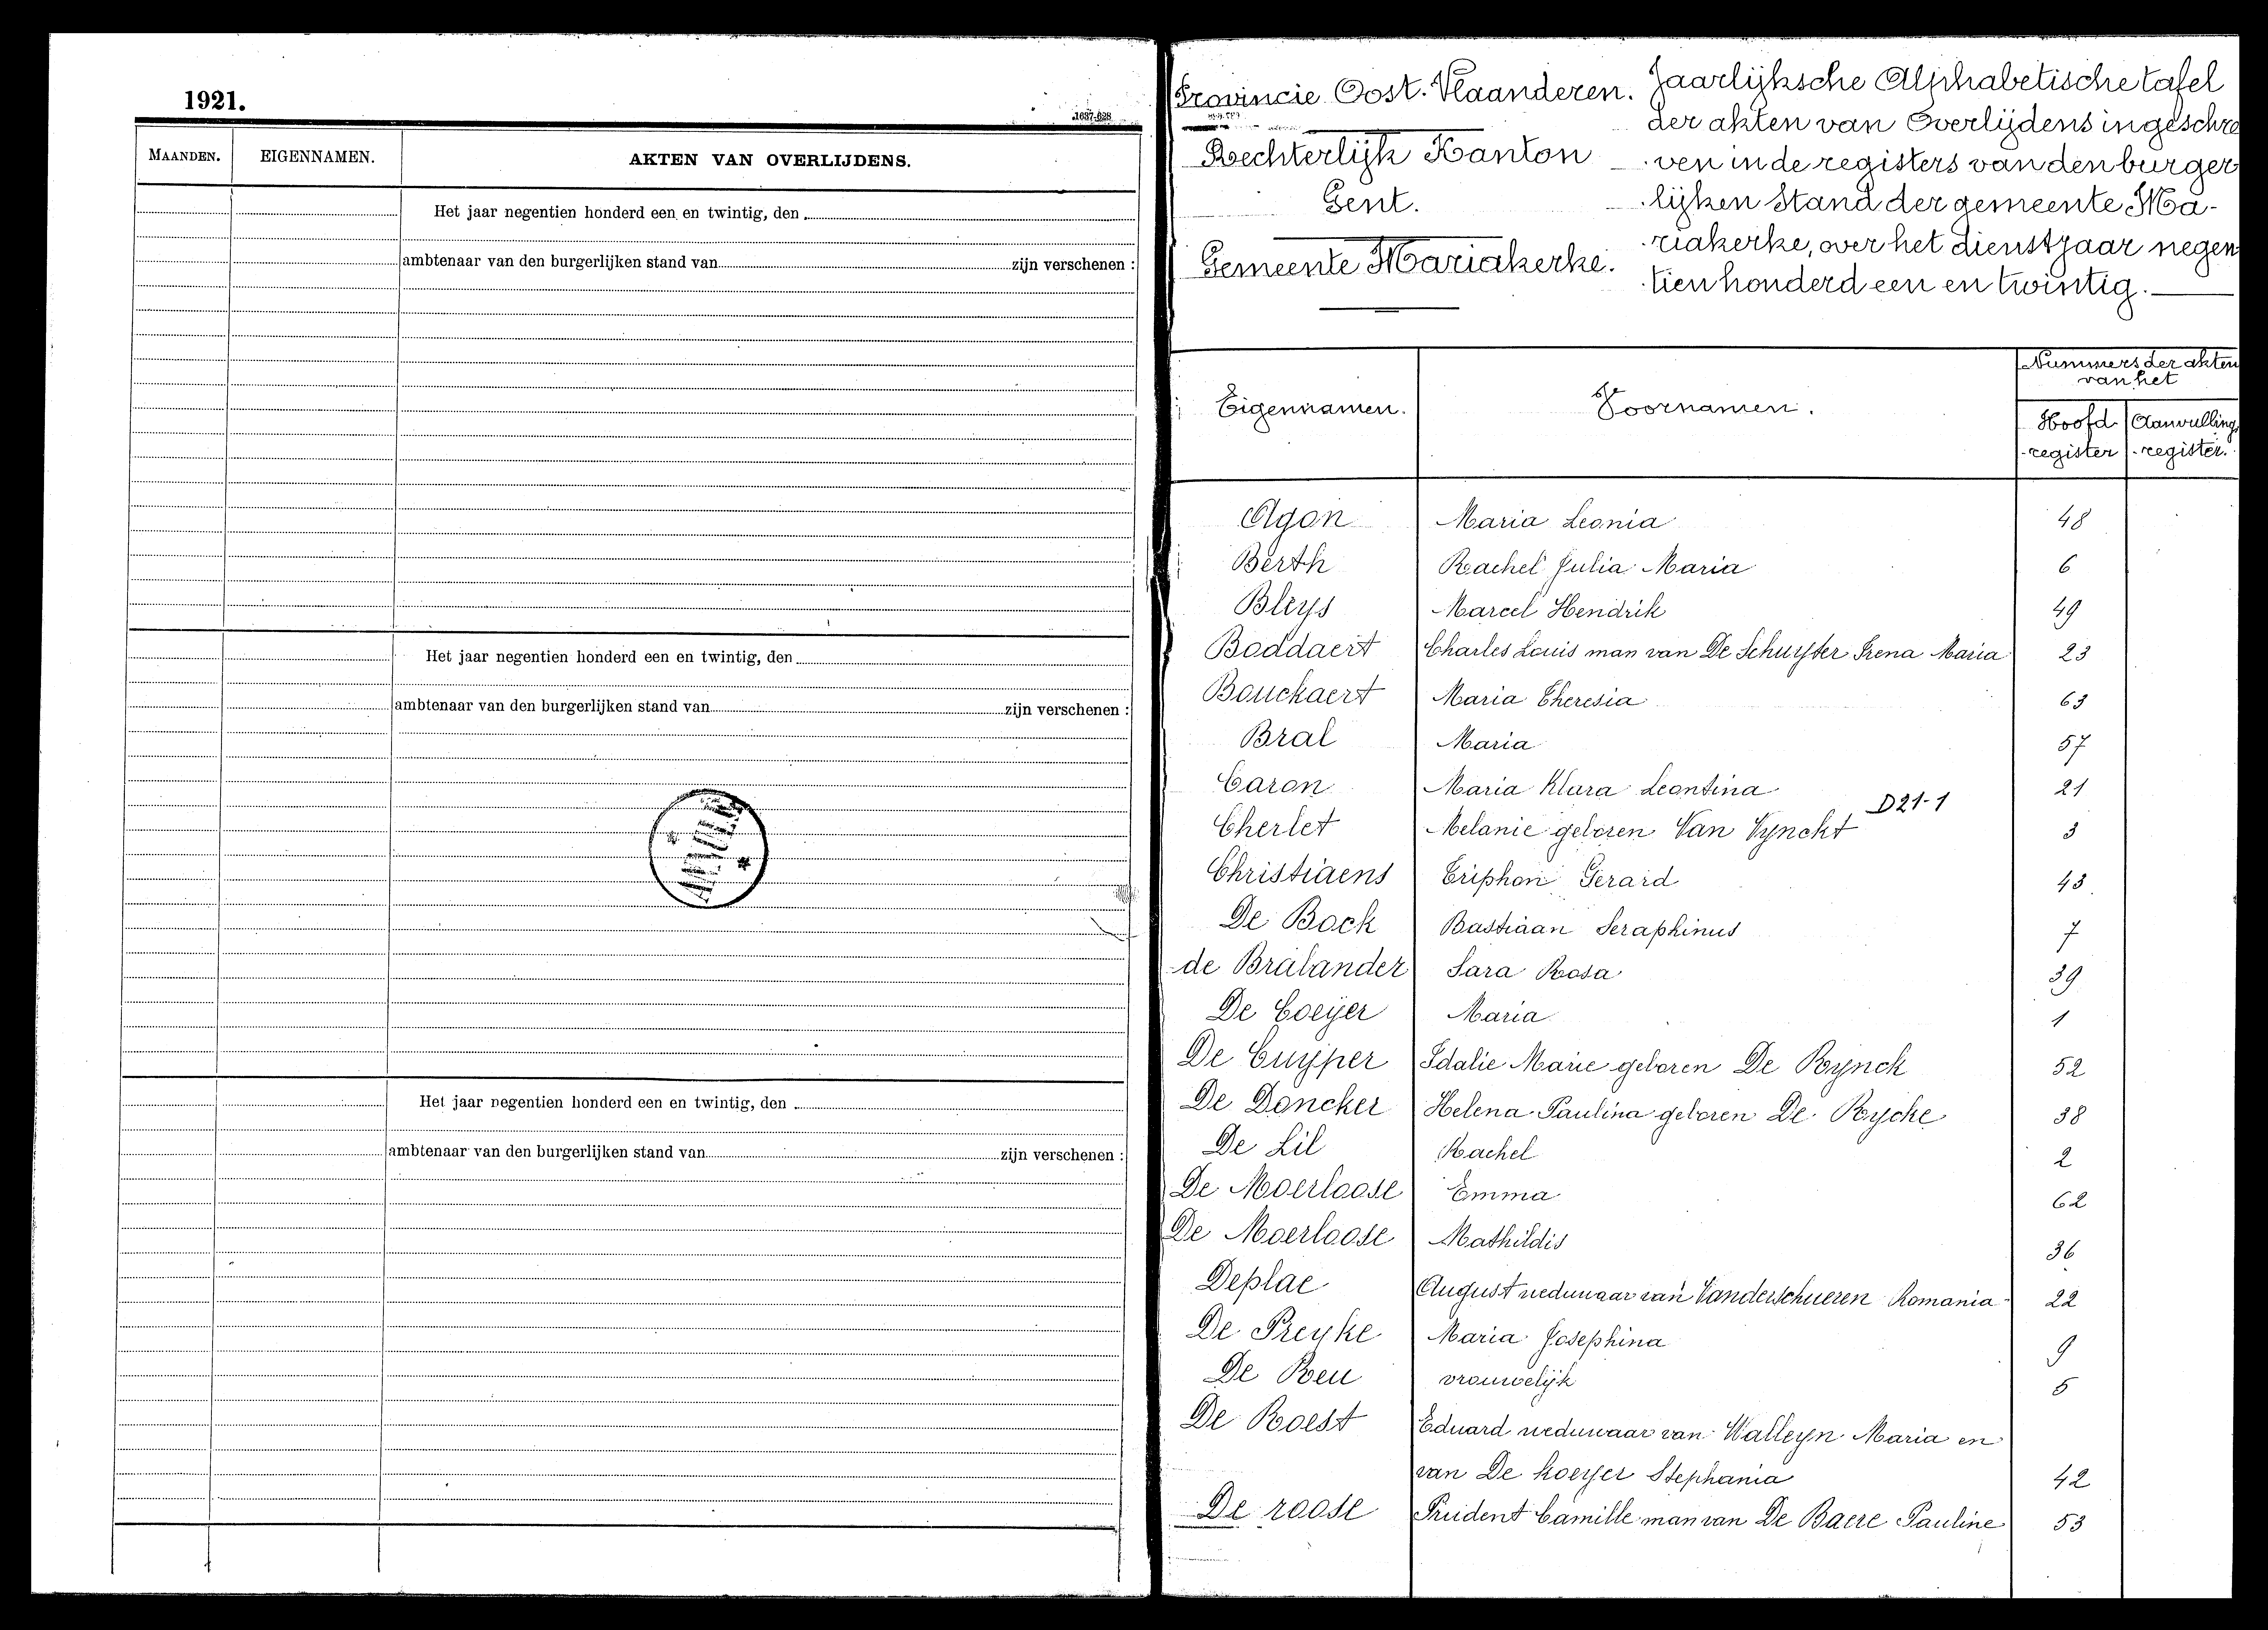 1921.
1637-628
MAANDEN.
EIGENNAMEN.
AKTEN VAN OVERLIJDENS.
Het jaar negentien honderd een en twintig, den
ambtenaar van den burgerlijken stand van zijn verschenen :
Het jaar negentien honderd een en twintig, den
ambtenaar van den burgerlijken stand van zijn verschenen :
Het jaar negentien honderd een en twintig, den
ambtenaar van den burgerlijken stand van zijn verschenen :
Provincie Oost-Vlaanderen.
Rechterlijk Kanton
Gent.
Gemeente Mariakerke.
Jaarlijksche Alphabetische tafel
der akten van Overlijdens ingeschre
ven in de registers van den burger
lijken Stand der gemeente Ma-
riakerke, over het dienstjaar negen
tien honderd een en twintig.
Eigennamen.
Voornamen.
Nummers der akten
van het
Hoofd
register
Aanvullings
register.
Agon Maria Leonia 48
Berth Rachel Julia Maria 6
Bleys Marcel Hendrik 49
Boddaert Charles Louis man van De Schuyter Irena Maria 23
Bouckaert Maria Theresia 63
Bral Maria 57
Caron Maria Klara Leontina 21
D21-1
Cherlet Melanie geboren Van Vynckt 3
Christiaens Triphon Gerard 43
De Bock Bastiaan Seraphinus 7
de Brabander Sara Rosa 39
De Coeyer Maria 1
De Cuyper Idalie Marie geboren De Rynck 52
De Doncker Helena Paulina geboren De Rycke 38
De Lil Rachel 2
De Moerloose Emma 62
De Moerloose Mathildis 36
Deplae August weduwaar van Vanderschueren Romania 22
De Preyke Maria Josephina 9
De Reu vrouwelijk 5
De Roest Eduard weduwaar van Walleyn Maria en
van De Koeyer Stephania 42
De roose Prudent Camille man van De Baere Pauline 53